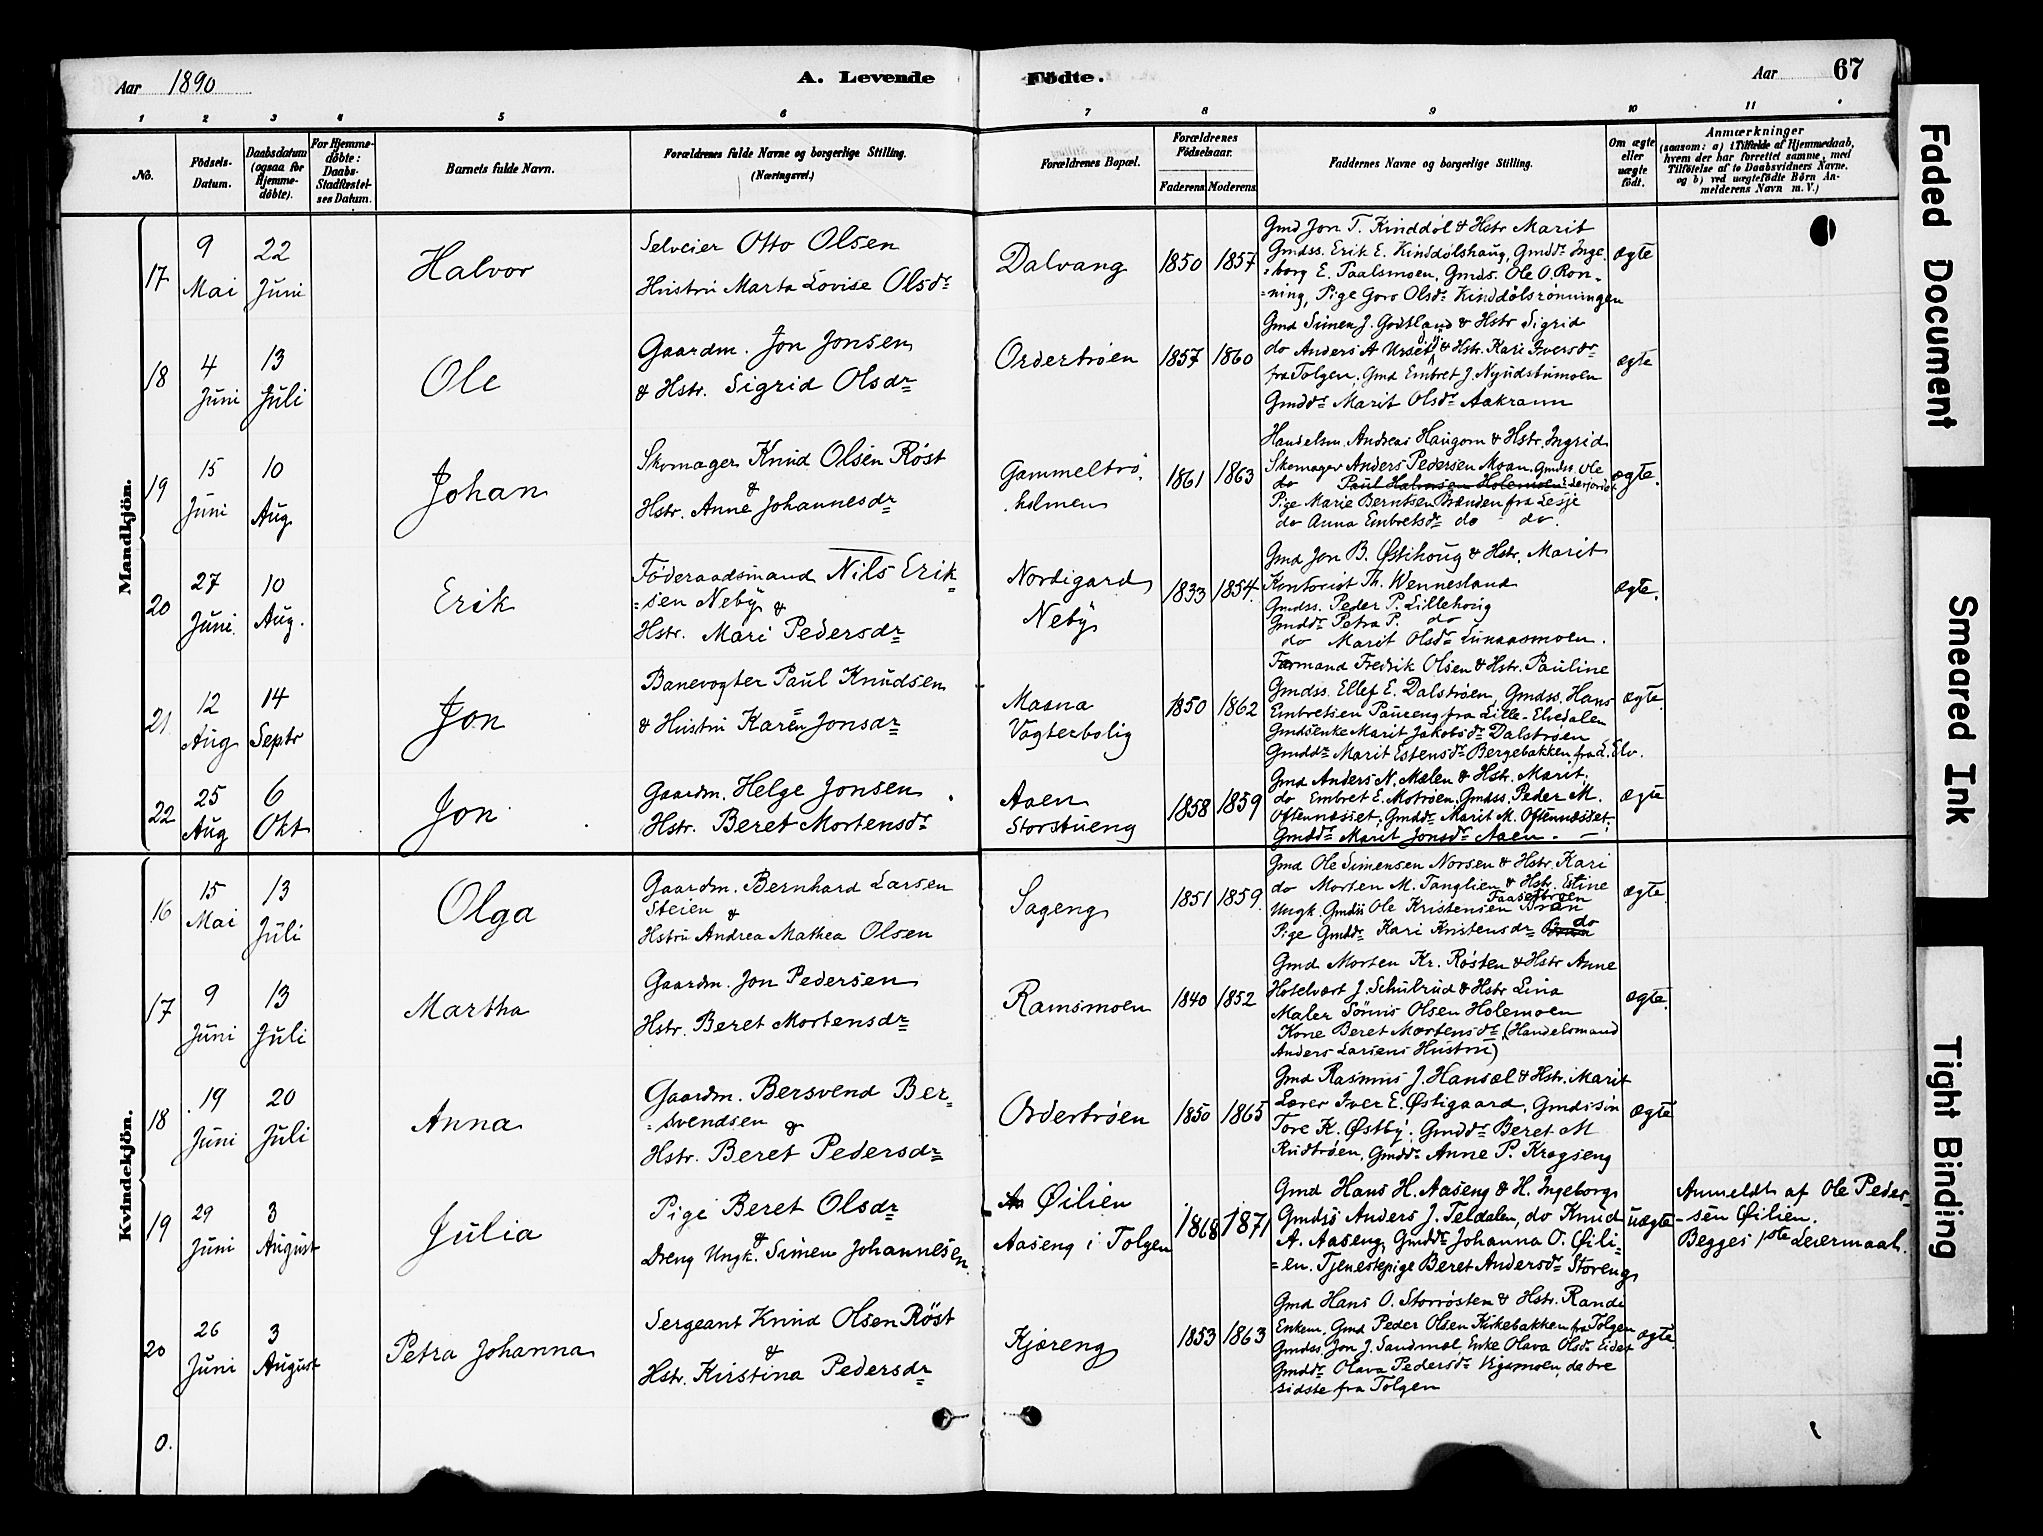 Aar 1890
A. Levende
Födte.
Aar
67
1 2 3 4 5 6 7 8 9 10 11
No.
Födsels-
Datum.
Daabsdatum
(ogsaa for
Hjemme-
döbte).
For Hjemme-
döbte:
Daabs-
Stadfæstel-
ses Datum.
Barnets fulde Navn.
Forældrenes fulde Navne og borgerlige Stilling.
(Næringsvei.)
Forældrenes Bopæl.
Forældrenes
Födselsaar.
Faderens Moderens
Faddernes Navne og borgerlige Stilling.
Om ægte
eller
uægte
födt.
Anmærkninger
(saasom: a) i Tilfælde af Hjemmedaab,
hvem der har forrettet samme, med
Tilföielse af to Daabsvidners Navne.
og b) ved uægtefödte Börn An-
melderens Navn m. V.)
Mandkjön.
17
9
Mai
22
Juni
Halvor
Selveier Otto Olsen
Hustru Marta Lovise Olsdr
Dalvang
1850 1857
Gmd Jon T. Kinddøl & Hstr Marit
Gmdss. Erik E. Kinddølshaug, Gmddr Inge
=borg E. Paalsmoen, Gmds. Ole O. Rön
=ning, Pige Goro Olsdr Kinddölsrönningen
ægte
18
4
Juni
13
Juli
Ole
Gaardm. Jon Jonsen
& Hstr. Sigrid Olsdr
Ordertrøen
1857 1860
Gmd Simen J. Godtland & Hstr Sigrid
do Anders A Urset & Hstr. Kari Iversdr
fra Tolgen, Gmd Embret J. Nyudstumoen
Gmddr Marit Olsdr Aakrann
ægte
19
15
Juni
10
Aug
Johan
Skomager Knud Olsen Röst
&
Hstr. Anne Johannesdr
Gammeltrø
holmen
1861 1863
Handelsm. Andreas Haugom & Hstr. Ingrid
Skomager Anders Pedersen Moan, Gmdss. Ole
do Paul Halvorsen Holemoen
Pige Marie Berntsen Brænden fra Lesje
do Anna Embretsdr do do.
ægte.
20
27
Juni.
10
Aug.
Erik
Føderaadsmand Nils Erik
=sen Neby &
Hstr. Mari Pedersdr
Nordigard
Neby
1833 1854.
Gmd Jon B. Østihoug & Hstr. Marit
Kontorist Th. Wennesland
Gmdss. Peder P. Lillehoug
Gmddr Petra P. do
do Marit Olsdr Lunaasmoen.
ægte.
21
12
Aug
14
Septr
Jon
Banevogter Paul Knudsen
& Hustru Karen Jonsdr
Maana
Vogterbolig
1850 1862
Formand Fredrik Olsen & Hstr. Pauline
Gmdss. Ellef E. Dalstrøen, Gmdss. Hans
Embretsen Paureng fra Lille-Elvedalen
Gmdsenke Marit Jakobsdr Dalstrøen
Gmddr Marit Estensdr Bergebakken fra L. Elv.
ægte.
22
25
Aug
6
Okt
Jon
Gaardm. Helge Jonsen
Hstr. Beret Mortensdr
Aaen
Storstueng
1858 1859
Gmd Anders N. Mælen & Hstr. Marit,
do Embret E. Motrøen, Gmdss. Peder M.
Oftennæsset, Gmddr Marit M. Oftennæsset,
Gmddr Marit Jonsdr Aaen. —
ægte
Kvindekjön.
16
15
Mai
13
Juli
Olga
Gaardm. Bernhard Larsen
Steien &
Hstru Andrea Mathea Olsen
Sageng
1851 1859.
Gmd Ole Simensen Norsen & Hstr. Kari
do Morten M. Tanglien & Hstr. Estine
Ungk. Gmds Ole Kristensen
Pige Gmddr Kari Kristensdr do
ægte.
17
9
Juni
13
Juli
Martha
Gaardm. Jon Pedersen
Hstr. Beret Mortensdr
Ramsmoen
1840 1852
Gmd Morten Kr. Røsten & Hstr Anne
Hotelvært J. Schulrud & Hstr Lina
Maler Tönnis Olsen Holemoen
Kone Beret Mortensdr (Handelsmand
Anders Larsens Hustru)
ægte.
18
19
Juni
20
Juli
Anna
Gaardm. Bersvend Ber
=svendsen &
Hstr. Beret Pedersdr
Ordertrøen
1850 1865
Gmd Rasmus J. Hansæl & Hstr. Marit
Lærer Iver E. Østigaard, Gmdssön
Tore K. Østby, Gmddr Beret M
Rudtrøen, Gmddr Anne P. Krogseng
ægte
19
29
Juni
3
August
Julia
Pige Beret Olsdr
&
Dreng Ungk. Simen Johannesen
Øilien
Aaseng i Tolgen
1868 1871
Gmd Hans H. Aaseng & H. Ingeborg
Gmdsö Anders J. Teldalen, do Knud
A. Aaseng, Gmddr Johanna O. Øili=
=en. Tjenestepige Beret Andersdr Storeng
uægte
Anmeldt af Ole Peder
-sen Øilien.
Begges 1ste Leiermaal.
20
26
Juni
3
August
Petra Johanna
Sergeant Knud Olsen Röst
&
Hstr. Kirstina Pedersdr
Kjøreng
1853 1863
Gmd Hans O. Storrøsten & Hstr. Randi
Enkem. Gmd Peder Olsen Kirkebakken fra Tolgen
Gmdss. Jon J. Sandmæl, Enke Olava Olsdr Eidet
Gmddr Olava Pedersdr Vigsmoen, de tre
sidste fra Tolgen
ægte.
0.
Faded Document
Smeared Ink
Tight Binding